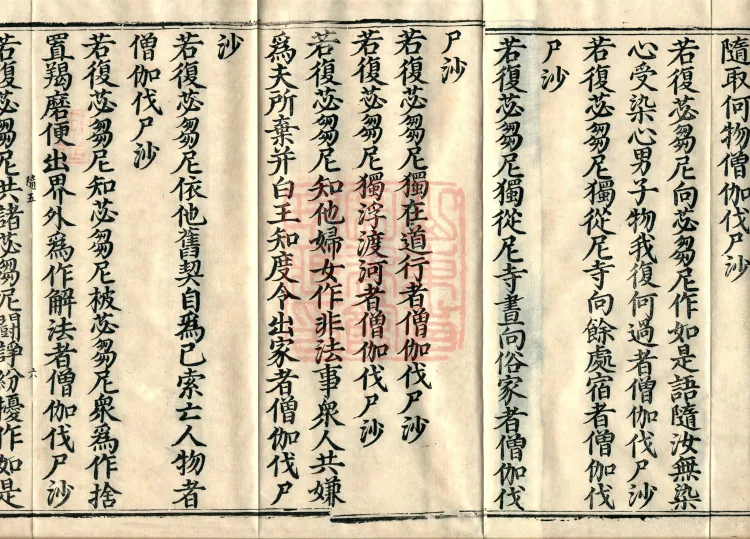 隨取何物僧伽伐尸沙
若復苾芻尼向苾芻尼作如是語隨汝無染
心受染心男子物我復何過者僧伽伐尸沙
若復苾芻尼獨從尼寺向餘處宿者僧伽伐
尸沙
若復苾芻尼獨從尼寺晝向俗家者僧伽伐
尸沙
若復苾芻尼獨在道行者僧伽伐尸沙
若復苾芻尼獨浮渡河者僧伽伐尸沙
若復苾芻尼知他婦女作非法事衆人共嫌
爲夫所棄并白王知度令出家者僧伽伐尸
沙
若復苾芻尼依他舊契自爲已索亡人物者
僧伽伐尸沙
若復苾芻尼知苾芻尼被苾芻尼衆爲作捨
置羯磨便出界外爲作解法者僧伽伐尸沙
隨五
六
若復苾芻尼共諸苾芻尼鬪諍紛擾作如是